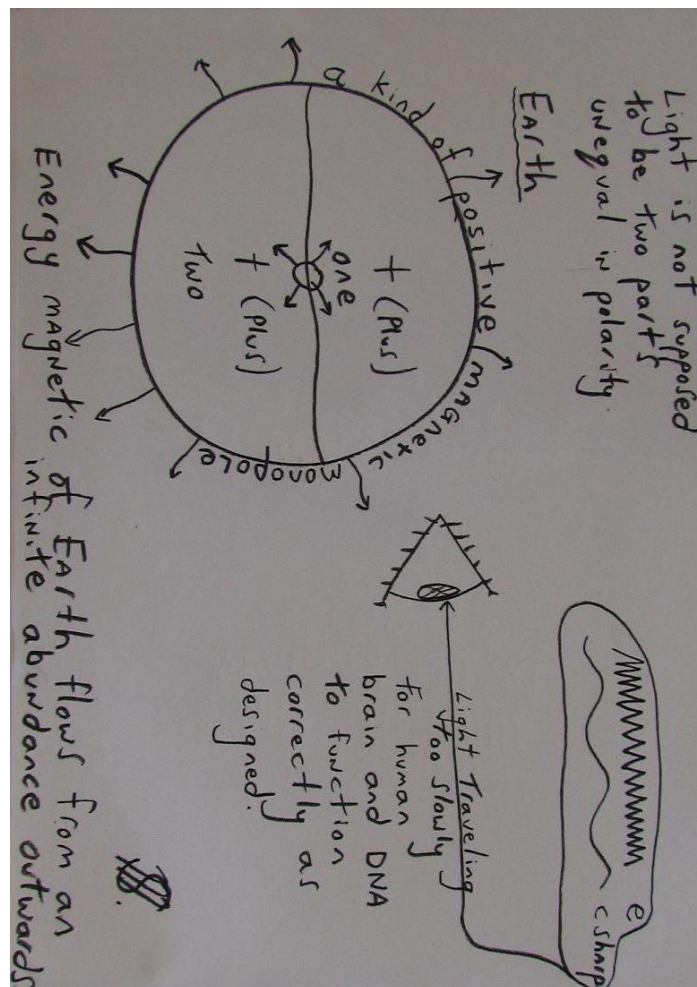 Light is not supposed
to be two parts
unequal in polarity.
EARTH
a kind of positive magnetic monopole
+ (Plus)
one
+ (Plus)
Two
e
c sharp
Light Traveling
too slowly
for human
brain and DNA
to function
correctly as
designed.
Energy magnetic of EARTH flows from an
infinite abundance outwards